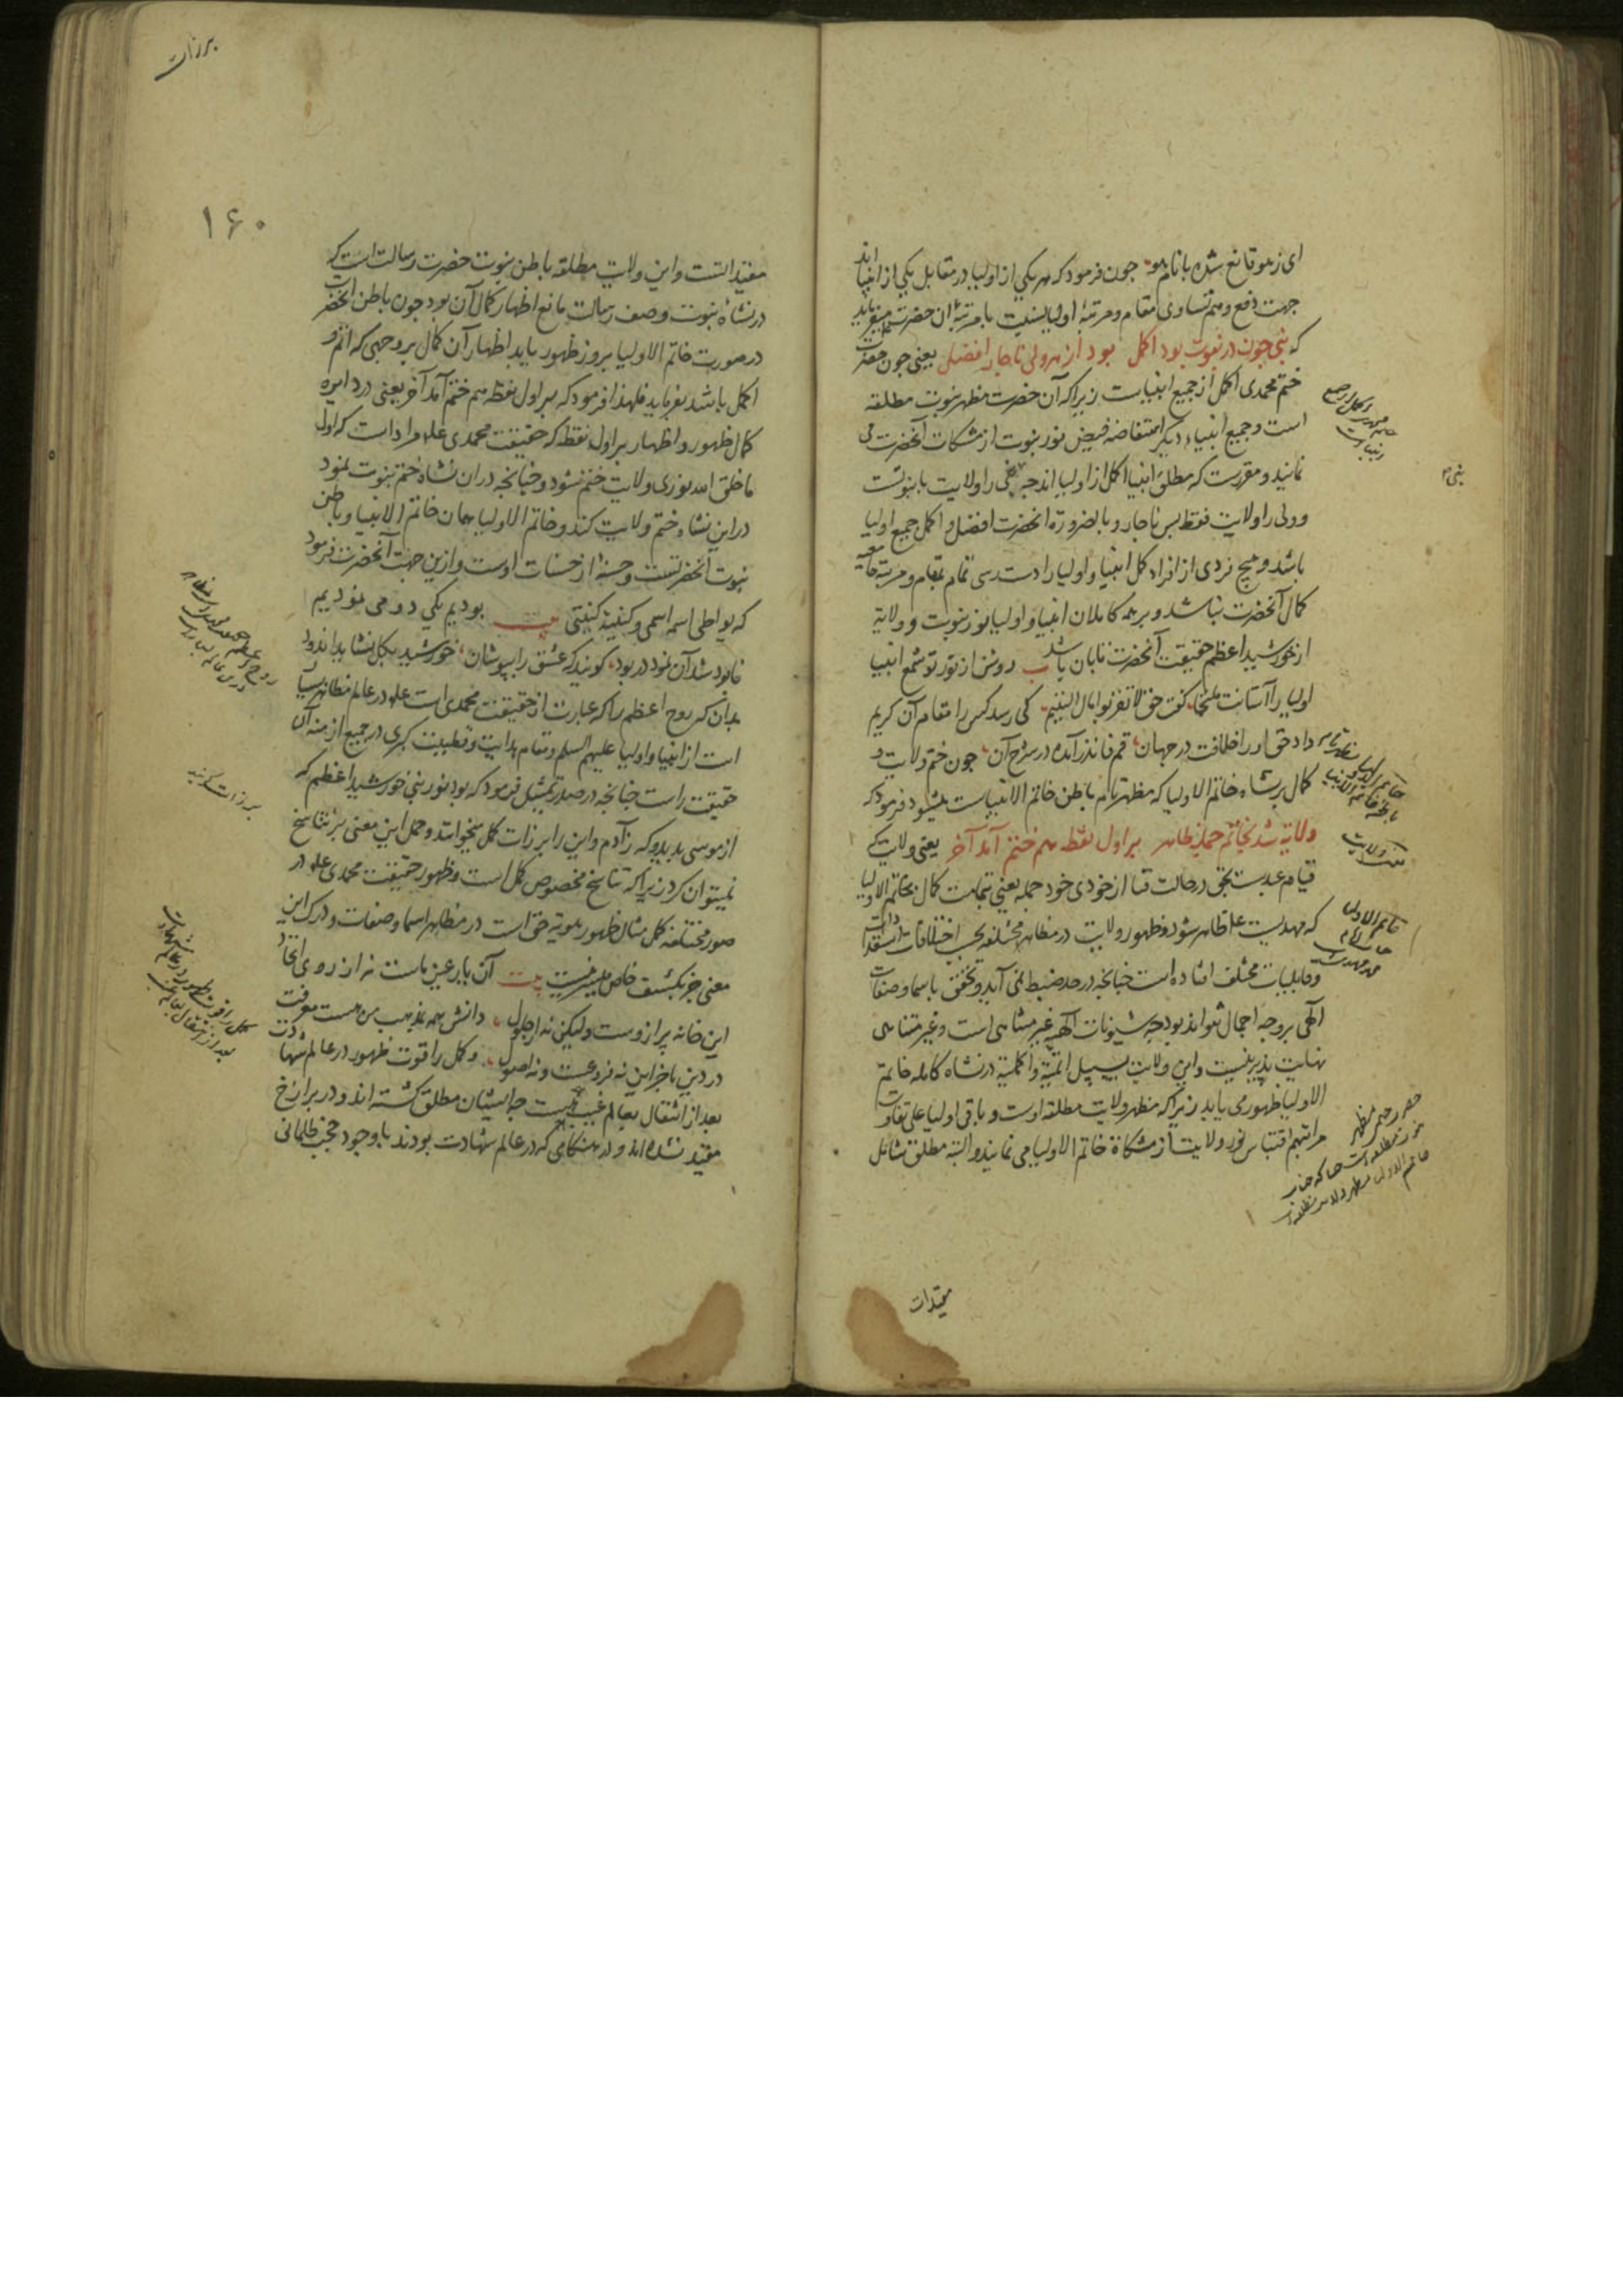 ای ز هو قانع شده با نام هو چون فرمود که هر یکی از اولیا در مقابل یکی از انبیا اند
جهت دفع وهم تساوی مقام و مرتبهٔ اولیا نسبت با مرتبهٔ آن حضرت میفرماید
که نبی چون در نبوت بود اکمل بود از هر ولی ناچار افضل یعنی چون حضرت
ختم محمدی اکمل از جمیع انبیاست زیرا که آن حضرت مظهر نبوت مطلقه
است و جمیع انبیاء دیگر استفاضه فیض نور نبوت از مشکات آنحضرت می
نمایند و مقررست که مطلق انبیا اکمل از اولیا اند چه نبی را ولایت با نبوتست
و ولی را ولایت فقط پس ناچار و بالضروره آنحضرت افضل و اکمل جمیع اولیا
باشد و هیچ فردی از افراد کل انبیا و اولیا را دست رسی تمام بمقام و مرتبه جامعیه
کمال آنحضرت نباشد و بر همه کاملان انبیا و اولیا نور نبوت و ولایة
از خورشید اعظم حقیقت آنحضرت تابان باشد روشن از نور تو شمع انبیا
اولیا را آستانت ملتجا گفت حق لا تقربوا مال الیتیم کی رسد کس را مقام آن کریم
داد حق او را خلافت در جهان قم فانذر آمده در شرح آن چون ختم ولایت و
کمال بر نشاه خاتم الاولیا که مظهر تام باطن خاتم الانبیاست میشود فرمود که
ولایة شد بخاتم جمله ظاهر بر اول نقطه هم ختم آمد آخر یعنی ولایت که
قیام عبدست بحق در حالت فنا از خودی خود جمله یعنی بتمامت کمال بخاتم الاولیا
که مهدیست علیه ظاهر شود و ظهور ولایت در مظاهر مختلفه بحسب اختلافات استعدادات
و قابلیات مختلف افتاده است چنانچه در حد ضبط نمی آید و تحقق باسما و صفات
آلهی بر وجه اجمال تواند بود چه شیونات آلهیه غیر متناهی است و غیر متناهی
نهایت پذیر نیست و این ولایت بسبیل اتمیة و اکملیة در نشاه کامله خاتم
الاولیا ظهور می یابد زیرا که مظهر ولایت مطلقه اوست و باقی اولیا علی تفاوت
مراتبهم اقتباس نور ولایت از مشکاة خاتم الاولیا می نمایند و البته مطلق شامل
مقیدات
برزات
۱۶۰
مقید الست و این ولایت مطلقه باطن نبوت حضرت رسالت است که
در نشاهٔ نبوت وصف رسالت مانع اظهار کمال آن بود چون باطن آنحضرت
در صورت خاتم الاولیا بروز ظهور یابد اظهار آن کمال بر وجهی که اتم و
اکمل باشد بفرماید فلهذا فرمود که بر اول نقطه هم ختم آمد آخر یعنی در دایره
کمال ظهور و اظهار بر اول نقطه که حقیقت محمدی علیه مرادست که اول
ما خلق الله نوری ولایت ختم شود و چنانچه در آن نشاه ختم نبوت نمود
در این نشاه ختم ولایت کند و خاتم الاولیا همان خاتم الانبیا و باطن
نبوت آنحضرتست و حسنهٔ از حسنات اوست و ازین جهت آنحضرت فرمود
که یواطی اسمه اسمی و کنیته کنیتی بیت بودیم یکی دو می نمودیم
نابود شد آن نمود در بود گویند که عشق را بپوشان خورشید بکل نشاید اندود
بدان که روح اعظم را که عبارت از حقیقت محمدی است علیه در عالم مظاهر بسیار
است از انبیا و اولیا علیهم السلم و مقام هدایت و قطبیت کبری در جمیع ازمنه آن
حقیقت راست چنانچه در صدر تمثیل فرمود که بود نور نبی خورشید اعظم که
از موسی پدید و که ز آدم و این را برزات کمل میخوانند و حمل این معنی بر تناسخ
نمیتوان کرد زیرا که تناسخ مخصوص کل است و ظهور حقیقت محمدی علیه در
صور مختلفه کمل مثال ظهور هویة حق است در مظاهر اسما و صفات و درک این
معنی جز بکشف خاص میسر نیست بیت آن یار عین ماست نه از روی اتحاد
این خانه پر از وست ولیکن نه از حلول دانش همه مذهب من هست معرفت
در دین ما جز این نه فروعست و نه اصول و کمل را قوت ظهور در عالم شهادت
بعد از انتقال بعالم غیب هست چه ایشان مطلق گشته اند و در برازخ
مقید نشده اند و در هنگامی که در عالم شهادت بودند با وجود حجب ظلمانی